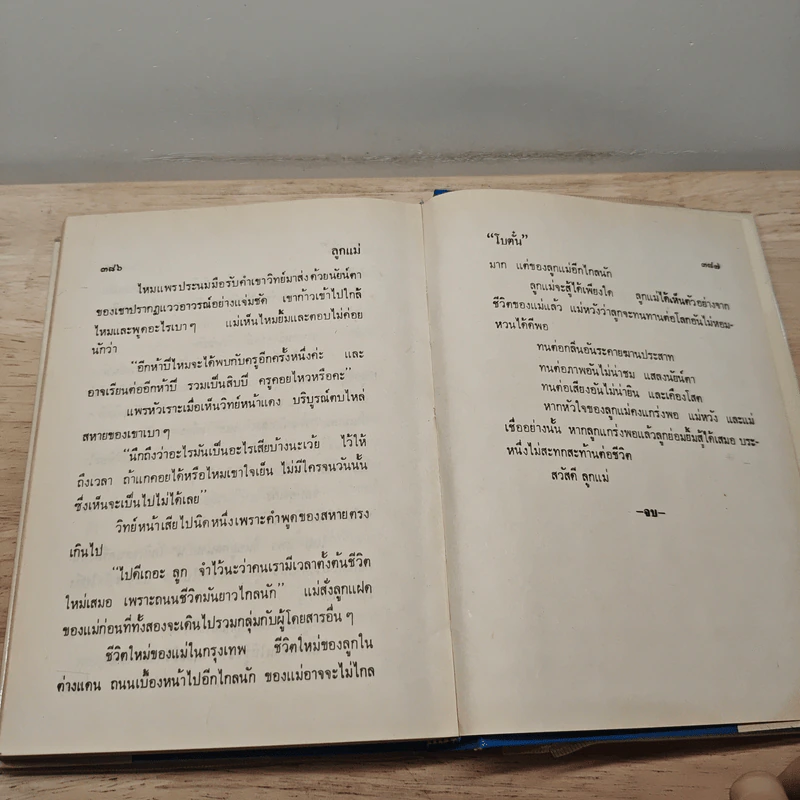 ๓๘๖ ลูกแม่
ไหมแพรประนมมือรับคำเขาวิทย์มาส่งด้วยนัยน์ตา
ของเขาปรากฏแววอาวรณ์อย่างแจ่มชัด เขาก้าวเข้าไปใกล้
ไหมและพูดอะไรเบา ๆ แม่เห็นไหมยิ้มและตอบไม่ค่อย
นักว่า
“อีกห้าปีไหมจะได้พบกับครูอีกครั้งหนึ่งค่ะ และ
อาจเรียนต่ออีกห้าปี รวมเป็นสิบปี ครูคอยไหวหรือคะ”
แพรหัวเราะเมื่อเห็นวิทย์หน้าแดง บริบูรณ์ตบไหล่
สหายของเขาเบา ๆ
“นึกถึงว่าอะไรมันเป็นอะไรเสียบ้างนะเว้ย ไว้ให้
ถึงเวลา ถ้าแกคอยได้หรือไหมเขาใจเย็น ไม่มีใครจนวันนั้น
ซึ่งเห็นจะเป็นไปไม่ได้เลย”
วิทย์หน้าเสียไปนิดหนึ่งเพราะคำพูดของสหายตรง
เกินไป
“ไปดีเถอะ ลูก จำไว้นะว่าคนเรามีเวลาตั้งต้นชีวิต
ใหม่เสมอ เพราะถนนชีวิตมันยาวไกลนัก” แม่สั่งลูกแฝด
ของแม่ก่อนที่ทั้งสองจะเดินไปรวมกลุ่มกับผู้โดยสารอื่น ๆ
ชีวิตใหม่ของแม่ในกรุงเทพ ชีวิตใหม่ของลูกใน
ต่างแดน ถนนเบื้องหน้าไปอีกไกลนัก ของแม่อาจจะไม่ไกล
“โบตั๋น” ๓๘๗
มาก แต่ของลูกแม่อีกไกลนัก
ลูกแม่จะสู้ได้เพียงใด ลูกแม่ได้เห็นตัวอย่างจาก
ชีวิตของแม่แล้ว แม่หวังว่าลูกจะทนทานต่อโลกอันไม่หอม-
หวนได้ดีพอ
ทนต่อกลิ่นอันระคายฆานประสาท
ทนต่อภาพอันไม่น่าชม แสลงนัยน์ตา
ทนต่อเสียงอันไม่น่ายิน และเคืองโสต
หากหัวใจของลูกแม่คงแกร่งพอ แม่หวัง และแม่
เชื่ออย่างนั้น หากลูกแกร่งพอแล้วลูกย่อมยิ้มสู้ได้เสมอ ประ-
หนึ่งไม่สะทกสะท้านต่อชีวิต
สวัสดี ลูกแม่
—จบ—